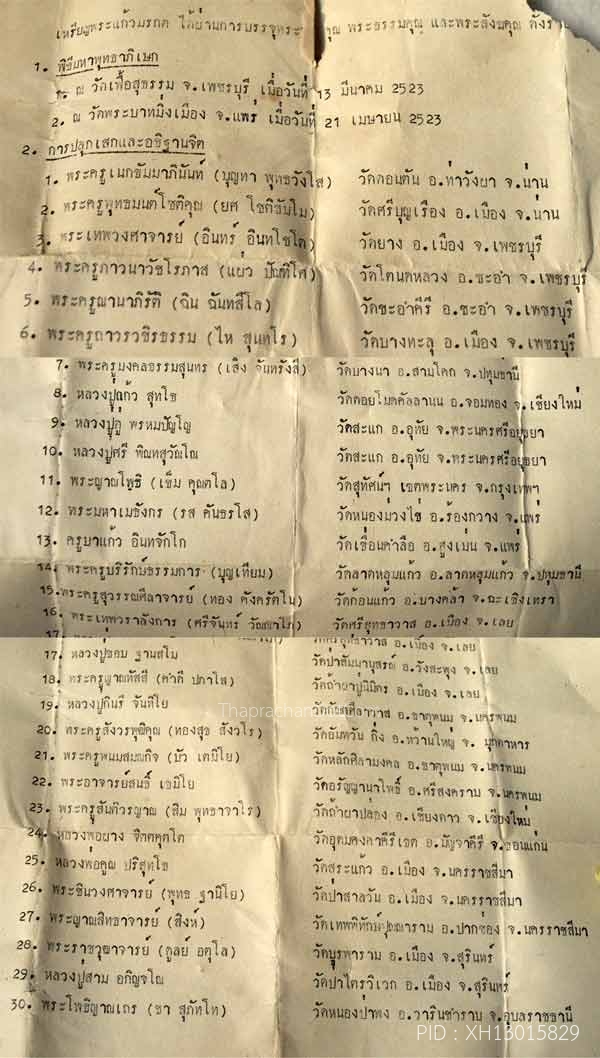 เหรียญพระแก้วมรกต ได้ผ่านการบรรจุพระ คุณ พระธรรมคุณ และพระสังฆคุณ ดังรา
1. พิธีมหาพุทธาภิเษก
1. ณ วัดเพื้อสุธรรม จ.เพชรบุรี เมื่อวันที่ 13 มีนาคม 2523
2. ณ วัดพระบาทมิ่งเมือง จ.แพร่ เมื่อวันที่ 21 เมษายน 2523
2. การปลุกเสกและอธิฐานจิต
1. พระครูเนกขัมมาภินันท์ (บุญทา พุทธวังโส) วัดดอนตัน อ.ท่าวังผา จ.น่าน
2. พระครูพุทธมนต์โชติคุณ (ยศ โชติธัมโม) วัดศรีบุญเรือง อ.เมือง จ.น่าน
3. พระเทพวงศาจารย์ (อินทร์ อินทโชโต) วัดยาง อ.เมือง จ.เพชรบุรี
4. พระครูภาวนาวัชโรภาส (แผ่ว ปัณฑิโต) วัดโตนดหลวง อ.ชะอำ จ.เพชรบุรี
5. พระครูญานาภิรัติ (ฉิน ฉันทสีโล) วัดชะอำคีรี อ.ชะอำ จ.เพชรบุรี
6. พระครูถาวรวชิรธรรม (ไห สุนทโร) วัดบางทะลุ อ.เมือง จ.เพชรบุรี
7. พระครูมงคลธรรมสุนทร (เส็ง จันทรังสี) วัดบางนา อ.สามโคก จ.ปทุมธานี
8. หลวงปู่แก้ว สุทโธ วัดดอยโมคคัลลานน อ.จอมทอง จ.เชียงใหม่
9. หลวงปู่ดู่ พรหมปัญโญ วัดสะแก อ.อุทัย จ.พระนครศรีอยุธยา
10. หลวงปู่ศรี พิณทสุวัณโณ วัดสะแก อ.อุทัย จ.พระนครศรีอยุธยา
11. พระญาณโพธิ (เข็ม คุณตโล) วัดสุทัศน์ฯ เขตพระนคร จ.กรุงเทพฯ
12. พระมหาเมธังกร (รส คันธรโส) วัดหนองม่วงไข่ อ.ร้องกวาง จ.แพร่
13. ครูบาแก้ว อินทจักโก วัดเขื่อนคำลือ อ.สูงเม่น จ.แพร่
14. พระครูบริรักษ์ธรรมการ (บุญเทียม) วัดลาดหลุมแก้ว อ.ลาดหลุมแก้ว จ.ปทุมธานี
15. พระครูสุวรรณศีลาจารย์ (ทอง คังครัตโน) วัดก้อนแก้ว อ.บางคล้า จ.ฉะเชิงเทรา
16. พระเทพวราลังการ (ศรีจันทร์ วัณณาโภ) วัดศรีสุทธาวาส อ.เมือง จ.เลย
17. หลวงปู่ชอบ ฐานสโม วัดป่าสัมมานุสรณ์ อ.วังสะพุง จ.เลย
18. พระครูญาณทัสสี (คำดี ปภาโส) วัดถ้ำผาปู่นิมิตร อ.เมือง จ.เลย
19. หลวงปู่กินรี จันทิโย อ.ธาตุพนม จ.นครพนม
20. พระครูสังวรพุฒิคุณ (ทองสุข สังวโร) อ.หว้านใหญ่ จ. มุกดาหาร
21. พระครูพนมสมณกิจ (บัว เตมิโย) วัดหลักศิลามงคล อ.ธาตุพนม จ.นครพนม
22. พระอาจารย์สนธิ์ เขมิโย วัดอรัญญานาโพธิ์ อ.ศรีสงคราม จ.นครพนม
23. พระครูสันติวรญาณ (สิม พุทธาจาโร) วัดถ้ำผาปล่อง อ.เชียงดาว จ.เชียงใหม่
24. หลวงพ่อผาง จิตตคุตโต วัดอุดมคงคาคีรีเขต อ.มัญจาคีรี จ.ขอนแก่น
25. หลวงพ่อคูณ ปริสุทโธ วัดสระแก้ว อ.เมือง จ.นครราชสีมา
26. พระชินวงศาจารย์ (พุทธ ฐานิโย) วัดป่าสาลวัน อ.เมือง จ.นครราชสีมา
27. พระญาณสิทธาจารย์ (สิงห์) วัดเทพพิทักษ์ปุณณาราม อ.ปากช่อง จ.นครราชสีมา
28. พระราชวุฒาจารย์ (ดูลย์ อตุโล) วัดบูรพาราม อ.เมือง จ.สุรินทร์
29. หลวงปู่สาม อกิญจโณ วัดป่าไตรวิเวก อ.เมือง จ.สุรินทร์
30. พระโพธิญาณเถร (ชา สุภัทโท) วัดหนองป่าพง อ.วารินชำราบ จ.อุบลราชธานี
PID : XH13015829